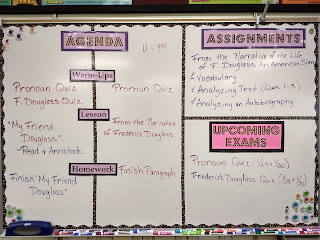 AGENDA
Warm-Ups
Pronoun Quiz
F. Douglass Quiz
Pronoun Quiz
Lesson
"My Friend
Douglass"
-Read & Annotate
From the Narrative
of Frederick Douglass
Homework
Finish "My Friend
Douglass"
Finish Paragraph
ASSIGNMENTS
From the Narrative of the Life
of F. Douglass: An American Slave
Vocabulary
Analyzing Text (Ques 1-3)
Analyzing an Autobiography
UPCOMING
EXAMS
Pronoun Quiz
Frederick Douglass Quiz